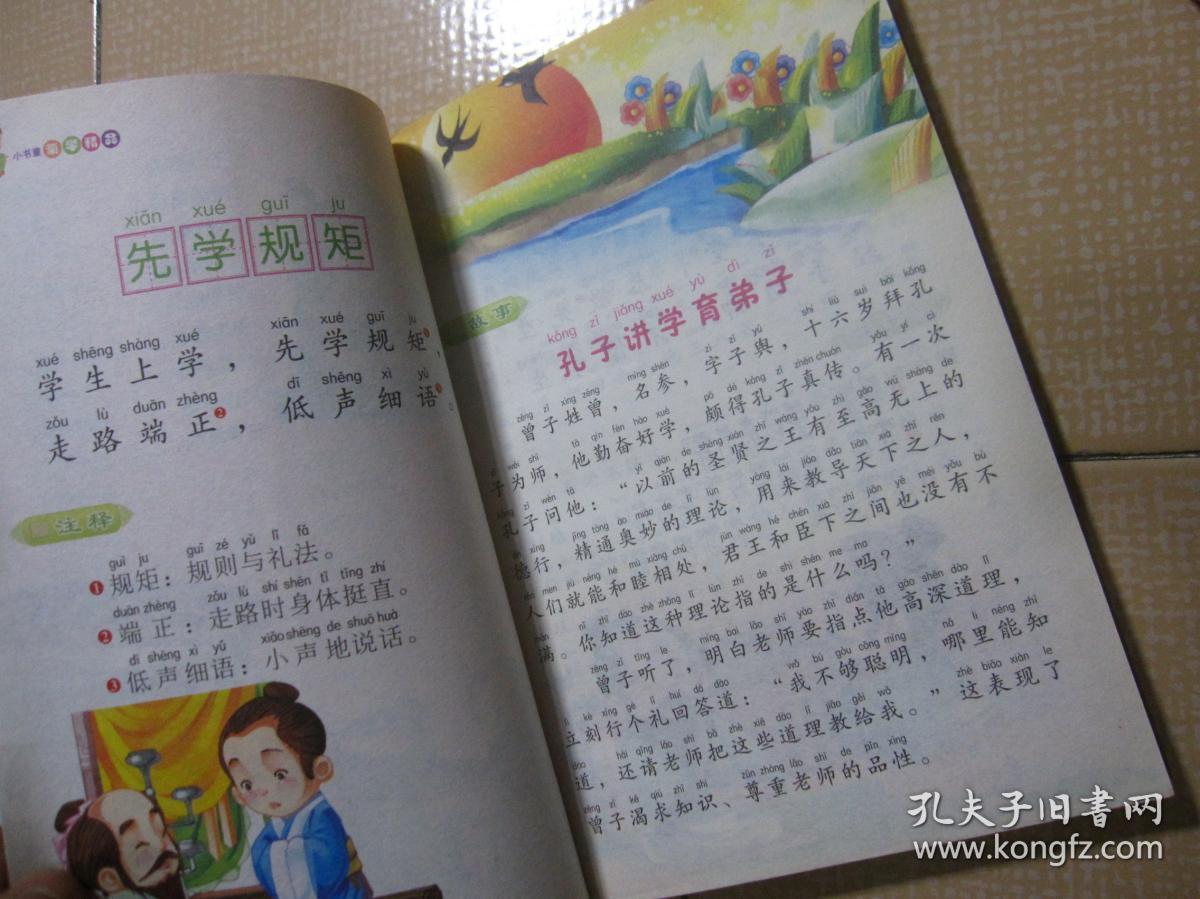 小书童 蒙学精品
xiān xué guī ju
先学规矩
xué shēng shàng xué xiān xué guī ju
学生上学，先学规矩❶，
zǒu lù duān zhèng dī shēng xì yǔ
走路端正❷，低声细语❸。
注释
guī ju guī zé yǔ lǐ fǎ
❶规矩：规则与礼法。
duān zhèng zǒu lù shí shēn tǐ tǐng zhí
❷端正：走路时身体挺直。
dī shēng xì yǔ xiǎo shēng de shuō huà
❸低声细语：小声地说话。
故事
kǒng zǐ jiǎng xué yù dì zǐ
孔子讲学育弟子
zēng zǐ xìng zēng míng shēn zì zǐ yú shí liù suì bài kǒng
曾子姓曾，名参，字子舆，十六岁拜孔
zǐ wéi shī tā qín fèn hào xué pō dé kǒng zǐ zhēn chuán yǒu yí cì
子为师，他勤奋好学，颇得孔子真传。有一次
kǒng zǐ wèn tā yǐ qián de shèng xián zhī wáng yǒu zhì gāo wú shàng de
孔子问他：“以前的圣贤之王有至高无上的
dé xíng jīng tōng ào miào de lǐ lùn yòng lái jiào dǎo tiān xià zhī rén
德行，精通奥妙的理论，用来教导天下之人，
rén men jiù néng hé mù xiāng chǔ jūn wáng hé chén xià zhī jiān yě méi yǒu bù
人们就能和睦相处，君王和臣下之间也没有不
mǎn nǐ zhī dào zhè zhǒng lǐ lùn zhǐ de shì shén me ma
满。你知道这种理论指的是什么吗？”
zēng zǐ tīng le míng bai lǎo shī yào zhǐ diǎn tā gāo shēn dào lǐ
曾子听了，明白老师要指点他高深道理，
lì kè xíng gè lǐ huí dá dào wǒ bú gòu cōng míng nǎ lǐ néng zhī
立刻行个礼回答道：“我不够聪明，哪里能知
dào hái qǐng lǎo shī bǎ zhè xiē dào lǐ jiāo gěi wǒ zhè biǎo xiàn le
道，还请老师把这些道理教给我。”这表现了
zēng zǐ kě qiú zhī shi zūn zhòng lǎo shī de pǐn xìng
曾子渴求知识、尊重老师的品性。
孔夫子旧书网
www.kongfz.com